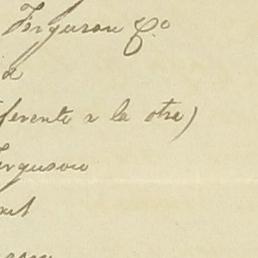 Ferguson &Co
a
ferente a la otra)
erguson